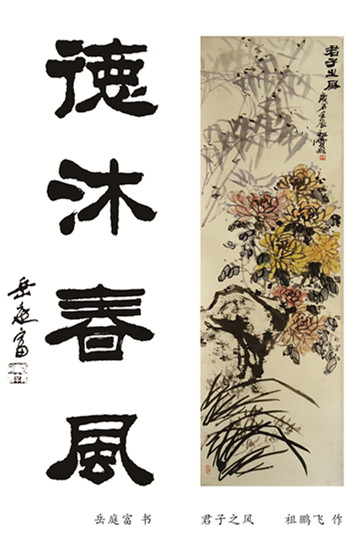 德沐春風
岳庭富
君子之風
岳庭富 书 君子之风 祖鹏飞 作